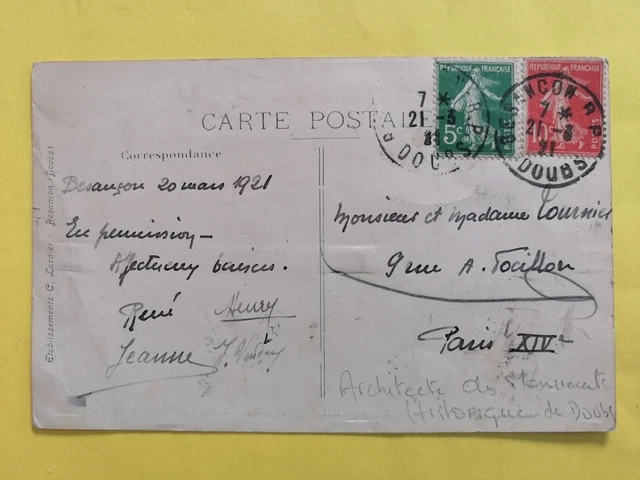 CARTE POSTALE
Correspondance
Besançon 20 mars 1921
En permission -
Affectueux baisers.
René Henry
Jeanne J.
Monsieur et Madame Tournier
9 rue A. Focillon
Paris XIVe
Architecte des Monuments
Historiques du Doubs
Etablissements C. Lardier - Besançon (Doubs)
REPUBLIQUE FRANÇAISE
5c POSTES
REPUBLIQUE FRANÇAISE
10c POSTES
7 *
21 -3
21
DOUBS
BESANCON R.P.
7 *
21 -3
21
DOUBS